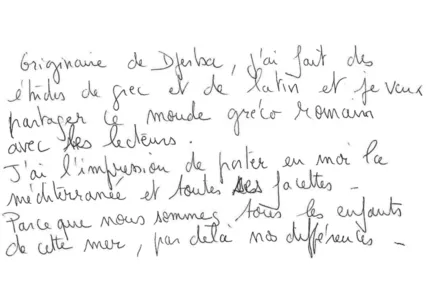 Originaire de Djerba, j'ai fait des
études de grec et de latin et je veux
partager ce monde gréco romain
avec les lecteurs.
J'ai l'impression de porter en moi la
méditerranée et toutes ses facettes -
Parce que nous sommes tous les enfants
de cette mer, par delà nos différences -